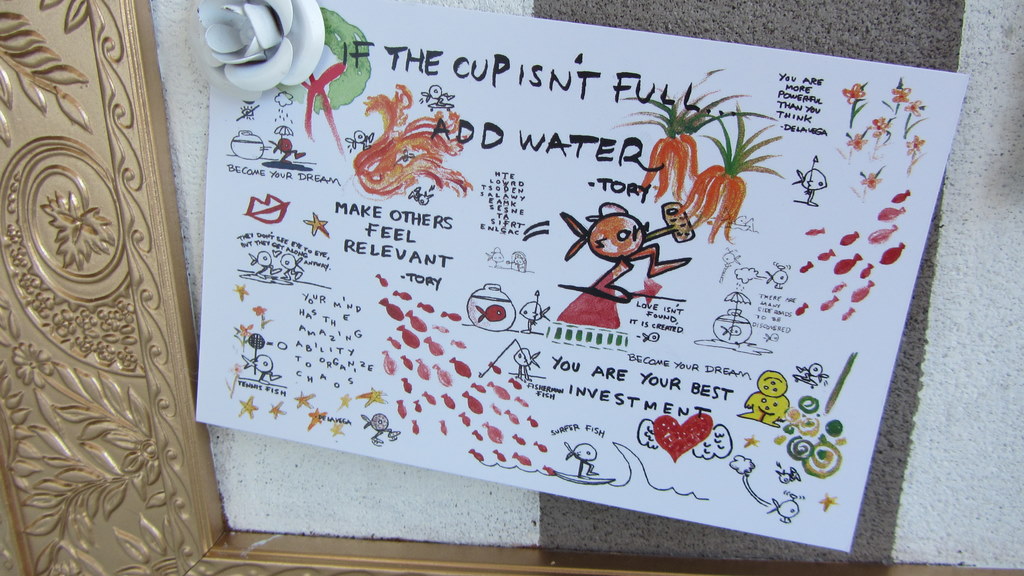 IF THE CUP ISN'T FULL...
ADD WATER
-TORY
YOU ARE
MORE
POWERFUL
THAN YOU
THINK
-DELAVEGA
BECOME YOUR DREAM
MAKE OTHERS
FEEL
RELEVANT
-TORY
THEY DON'T SEE EYE TO EYE,
BUT THEY GET ALONG ANYWAY.
YOUR MIND
HAS THE
AMAZING
ABILITY
TO ORGANIZE
CHAOS
TENNIS FISH
LOVE ISN'T
FOUND
IT IS CREATED
THERE ARE
MANY
SIDE ROADS
TO BE
DISCOVERED
BECOME YOUR DREAM
YOU ARE YOUR BEST
INVESTMENT
FISHERMAN
FISH
SURFER FISH